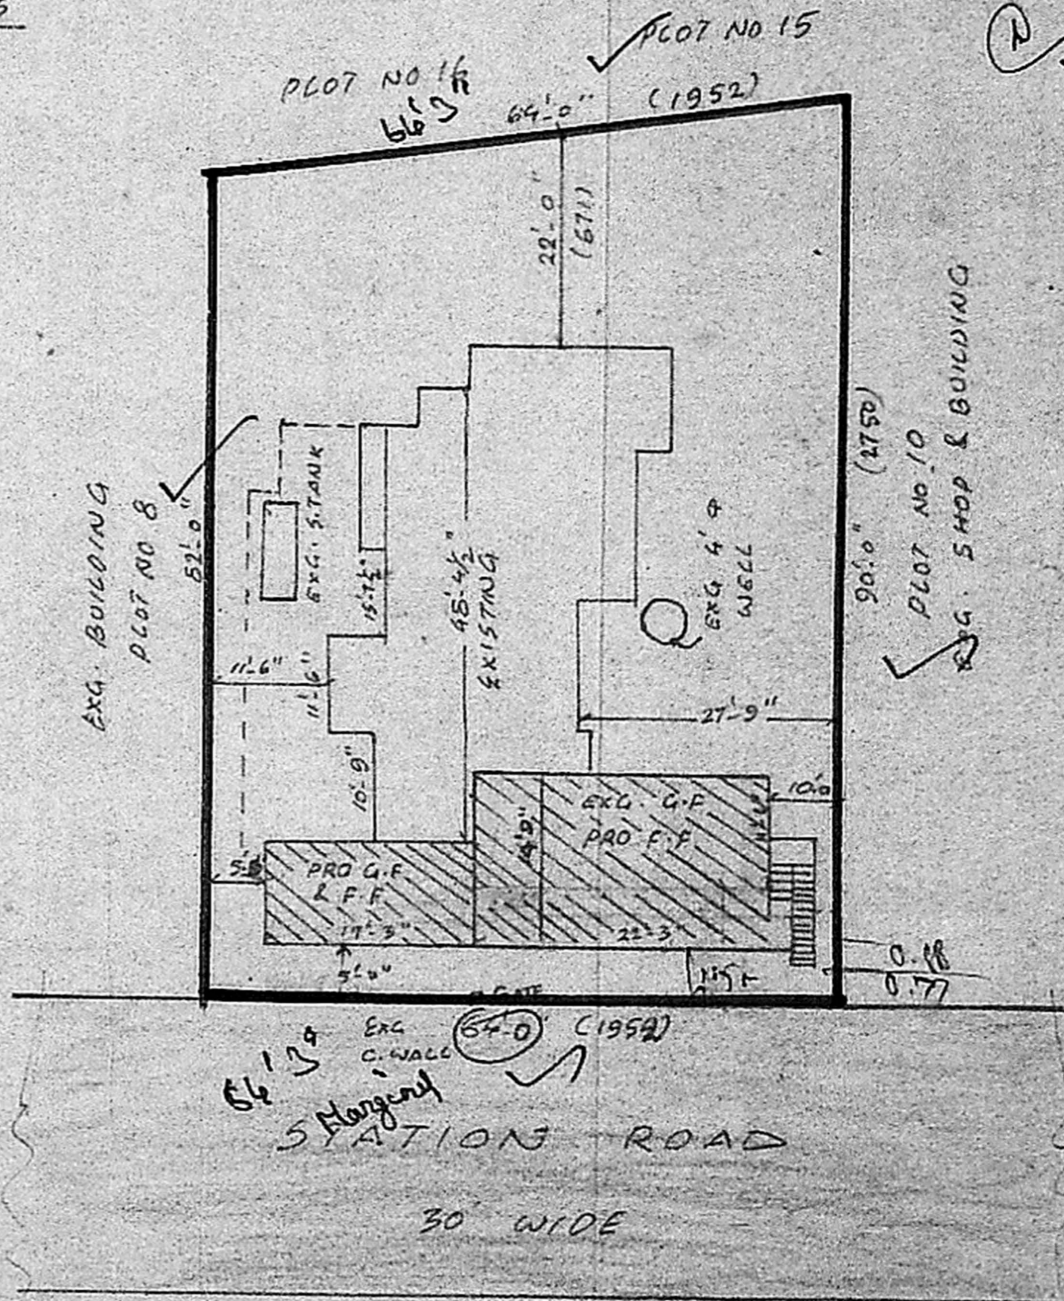 PLOT NO 15
PLOT NO 16
66'3"
64'-0"
(1952)
22'-0"
(671)
EXG. BUILDING
PLOT NO 8
52'-0"
EXG. S. TANK
15'-7½"
45'-4½"
EXISTING
EXG 4' Φ
WELL
90'.0" (2750)
PLOT NO.10
EXG. SHOP & BUILDING
11'-6"
11'-6"
27'-9"
10'-9"
EXG. G.F
PRO F.F
10'.0
PRO G.F.
& F.F
17'-3"
22'-3"
5'-0"
0.77
EXG
C. WALL
64'-0"
(1952)
Marginal
STATION ROAD
30' WIDE